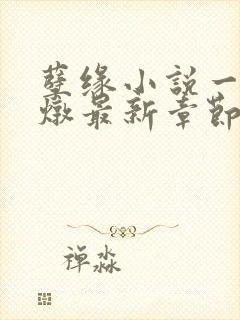 孽缘小説一
燉最新章節
禅淼